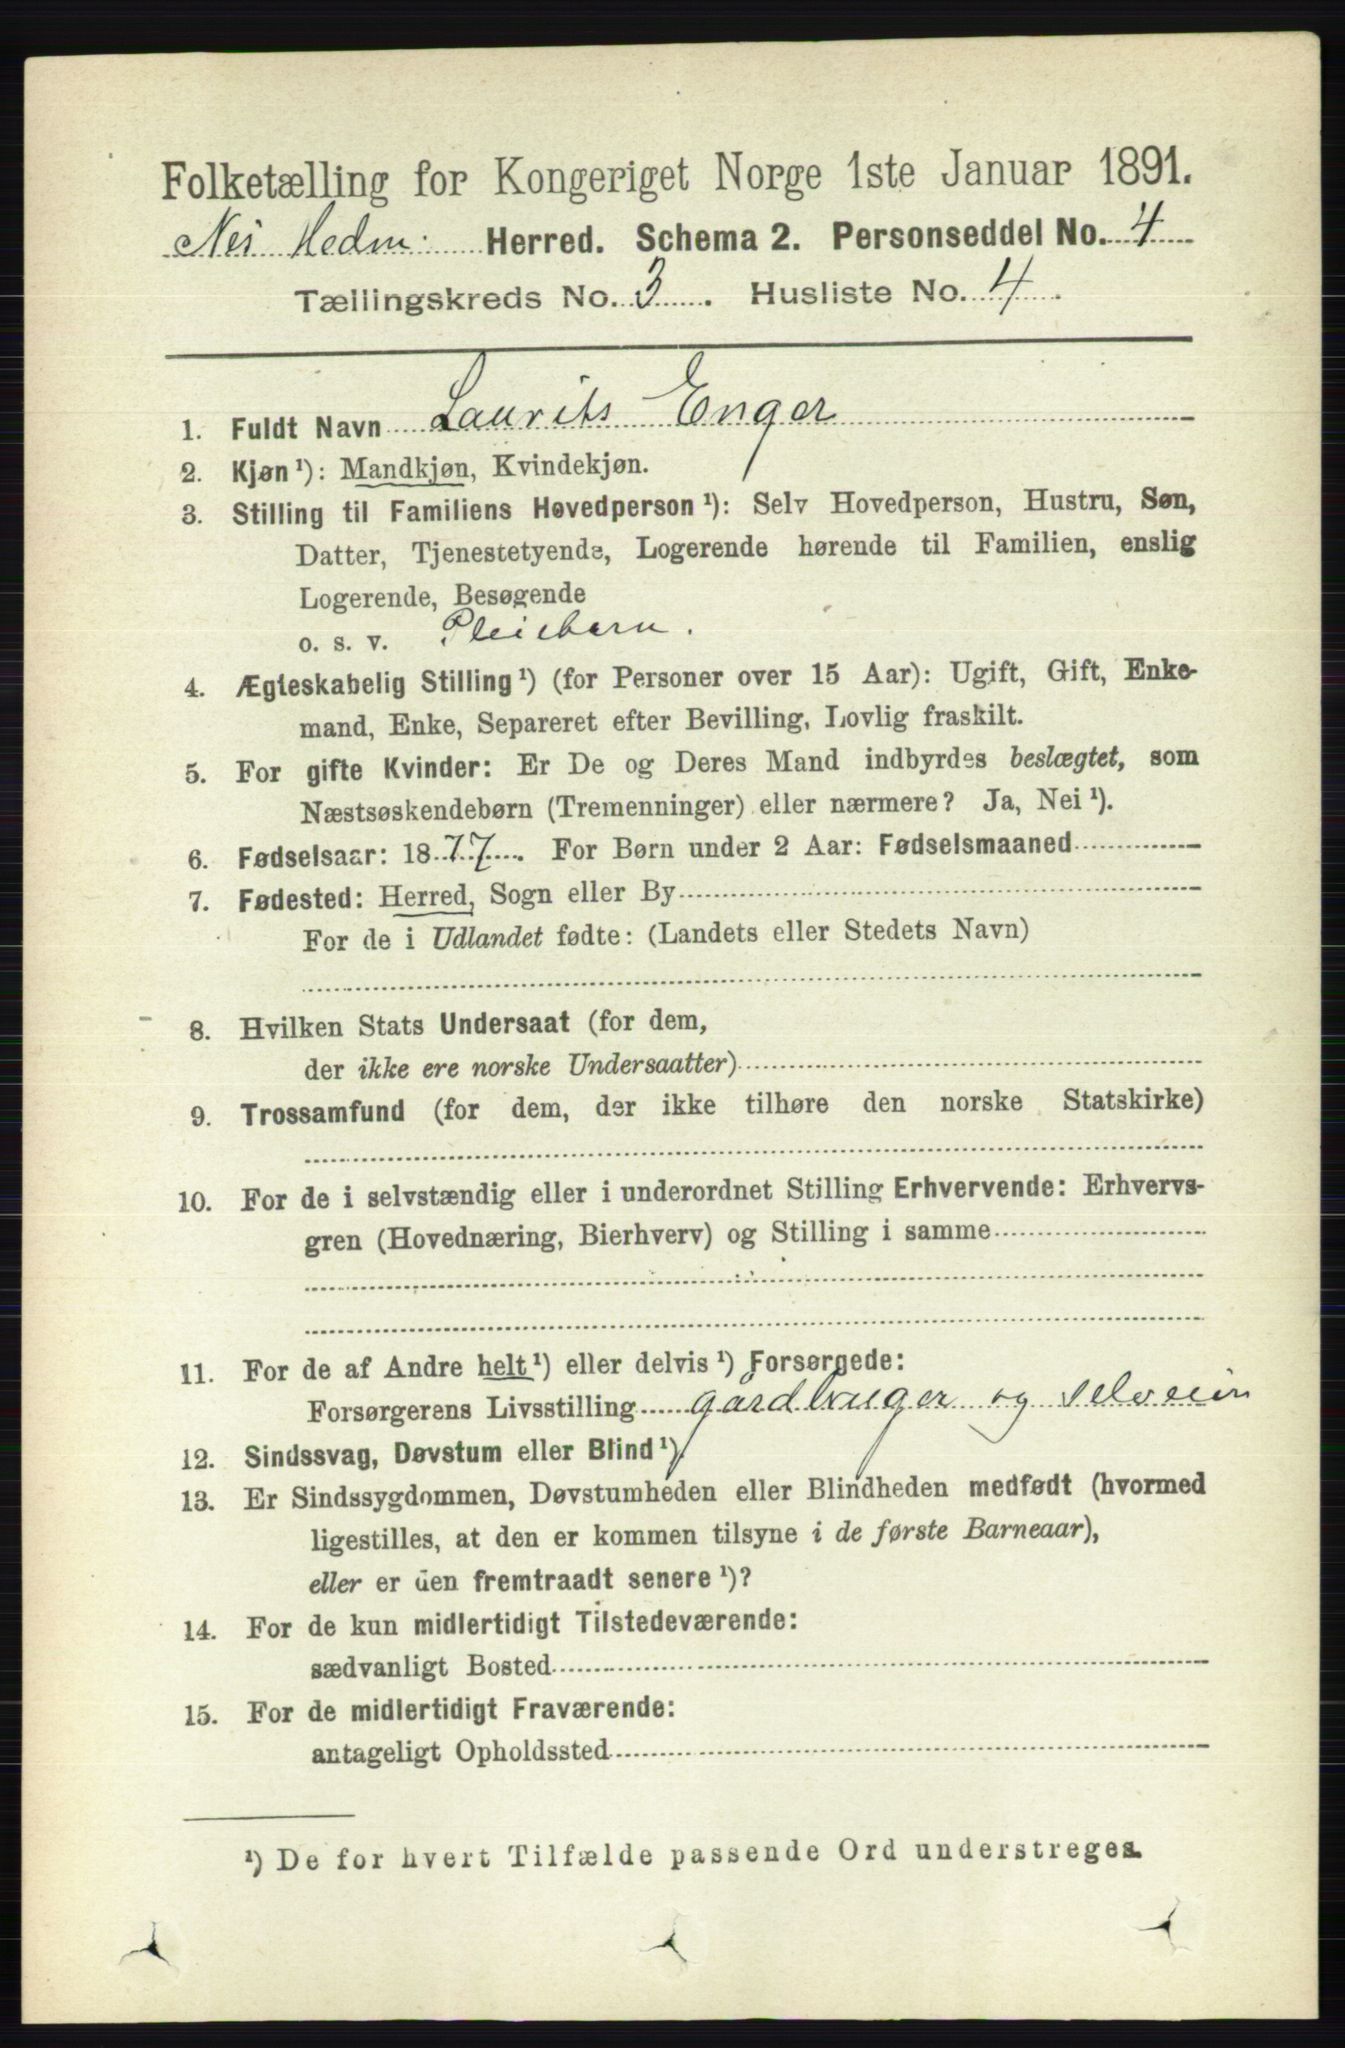 Folketælling for Kongeriget Norge 1ste Januar 1891.
Nes Hedm: Herred. Schema 2. Personseddel No. 4
Tællingskreds No. 3. Husliste No. 4.
1. Fuldt Navn Laurits Enger
2. Kjøn ¹): Mandkjøn, Kvindekjøn.
3. Stilling til Familiens Hovedperson ¹): Selv Hovedperson, Hustru, Søn,
Datter, Tjenestetyende, Logerende hørende til Familien, enslig
Logerende, Besøgende
o. s. v. Pleiebarn.
4. Ægteskabelig Stilling ¹) (for Personer over 15 Aar): Ugift, Gift, Enke-
mand, Enke, Separeret efter Bevilling, Lovlig fraskilt.
5. For gifte Kvinder: Er De og Deres Mand indbyrdes beslægtet, som
Næstsøskendebørn (Tremenninger) eller nærmere? Ja, Nei ¹).
6. Fødselsaar: 1877. For Børn under 2 Aar: Fødselsmaaned
7. Fødested: Herred, Sogn eller By
For de i Udlandet fødte: (Landets eller Stedets Navn)
8. Hvilken Stats Undersaat (for dem,
der ikke ere norske Undersaatter)
9. Trossamfund (for dem, der ikke tilhøre den norske Statskirke)
10. For de i selvstændig eller i underordnet Stilling Erhvervende: Erhvervs-
gren (Hovednæring, Bierhverv) og Stilling i samme
11. For de af Andre helt ¹) eller delvis ¹) Forsørgede:
Forsørgerens Livsstilling gårdbruger og selveier
12. Sindssvag, Døvstum eller Blind ¹).
13. Er Sindssygdommen, Døvstumheden eller Blindheden medfødt (hvormed
ligestilles, at den er kommen tilsyne i de første Barneaar),
eller er den fremtraadt senere ¹)?
14. For de kun midlertidigt Tilstedeværende:
sædvanligt Bosted
15. For de midlertidigt Fraværende:
antageligt Opholdssted
¹) De for hvert Tilfælde passende Ord understreges.